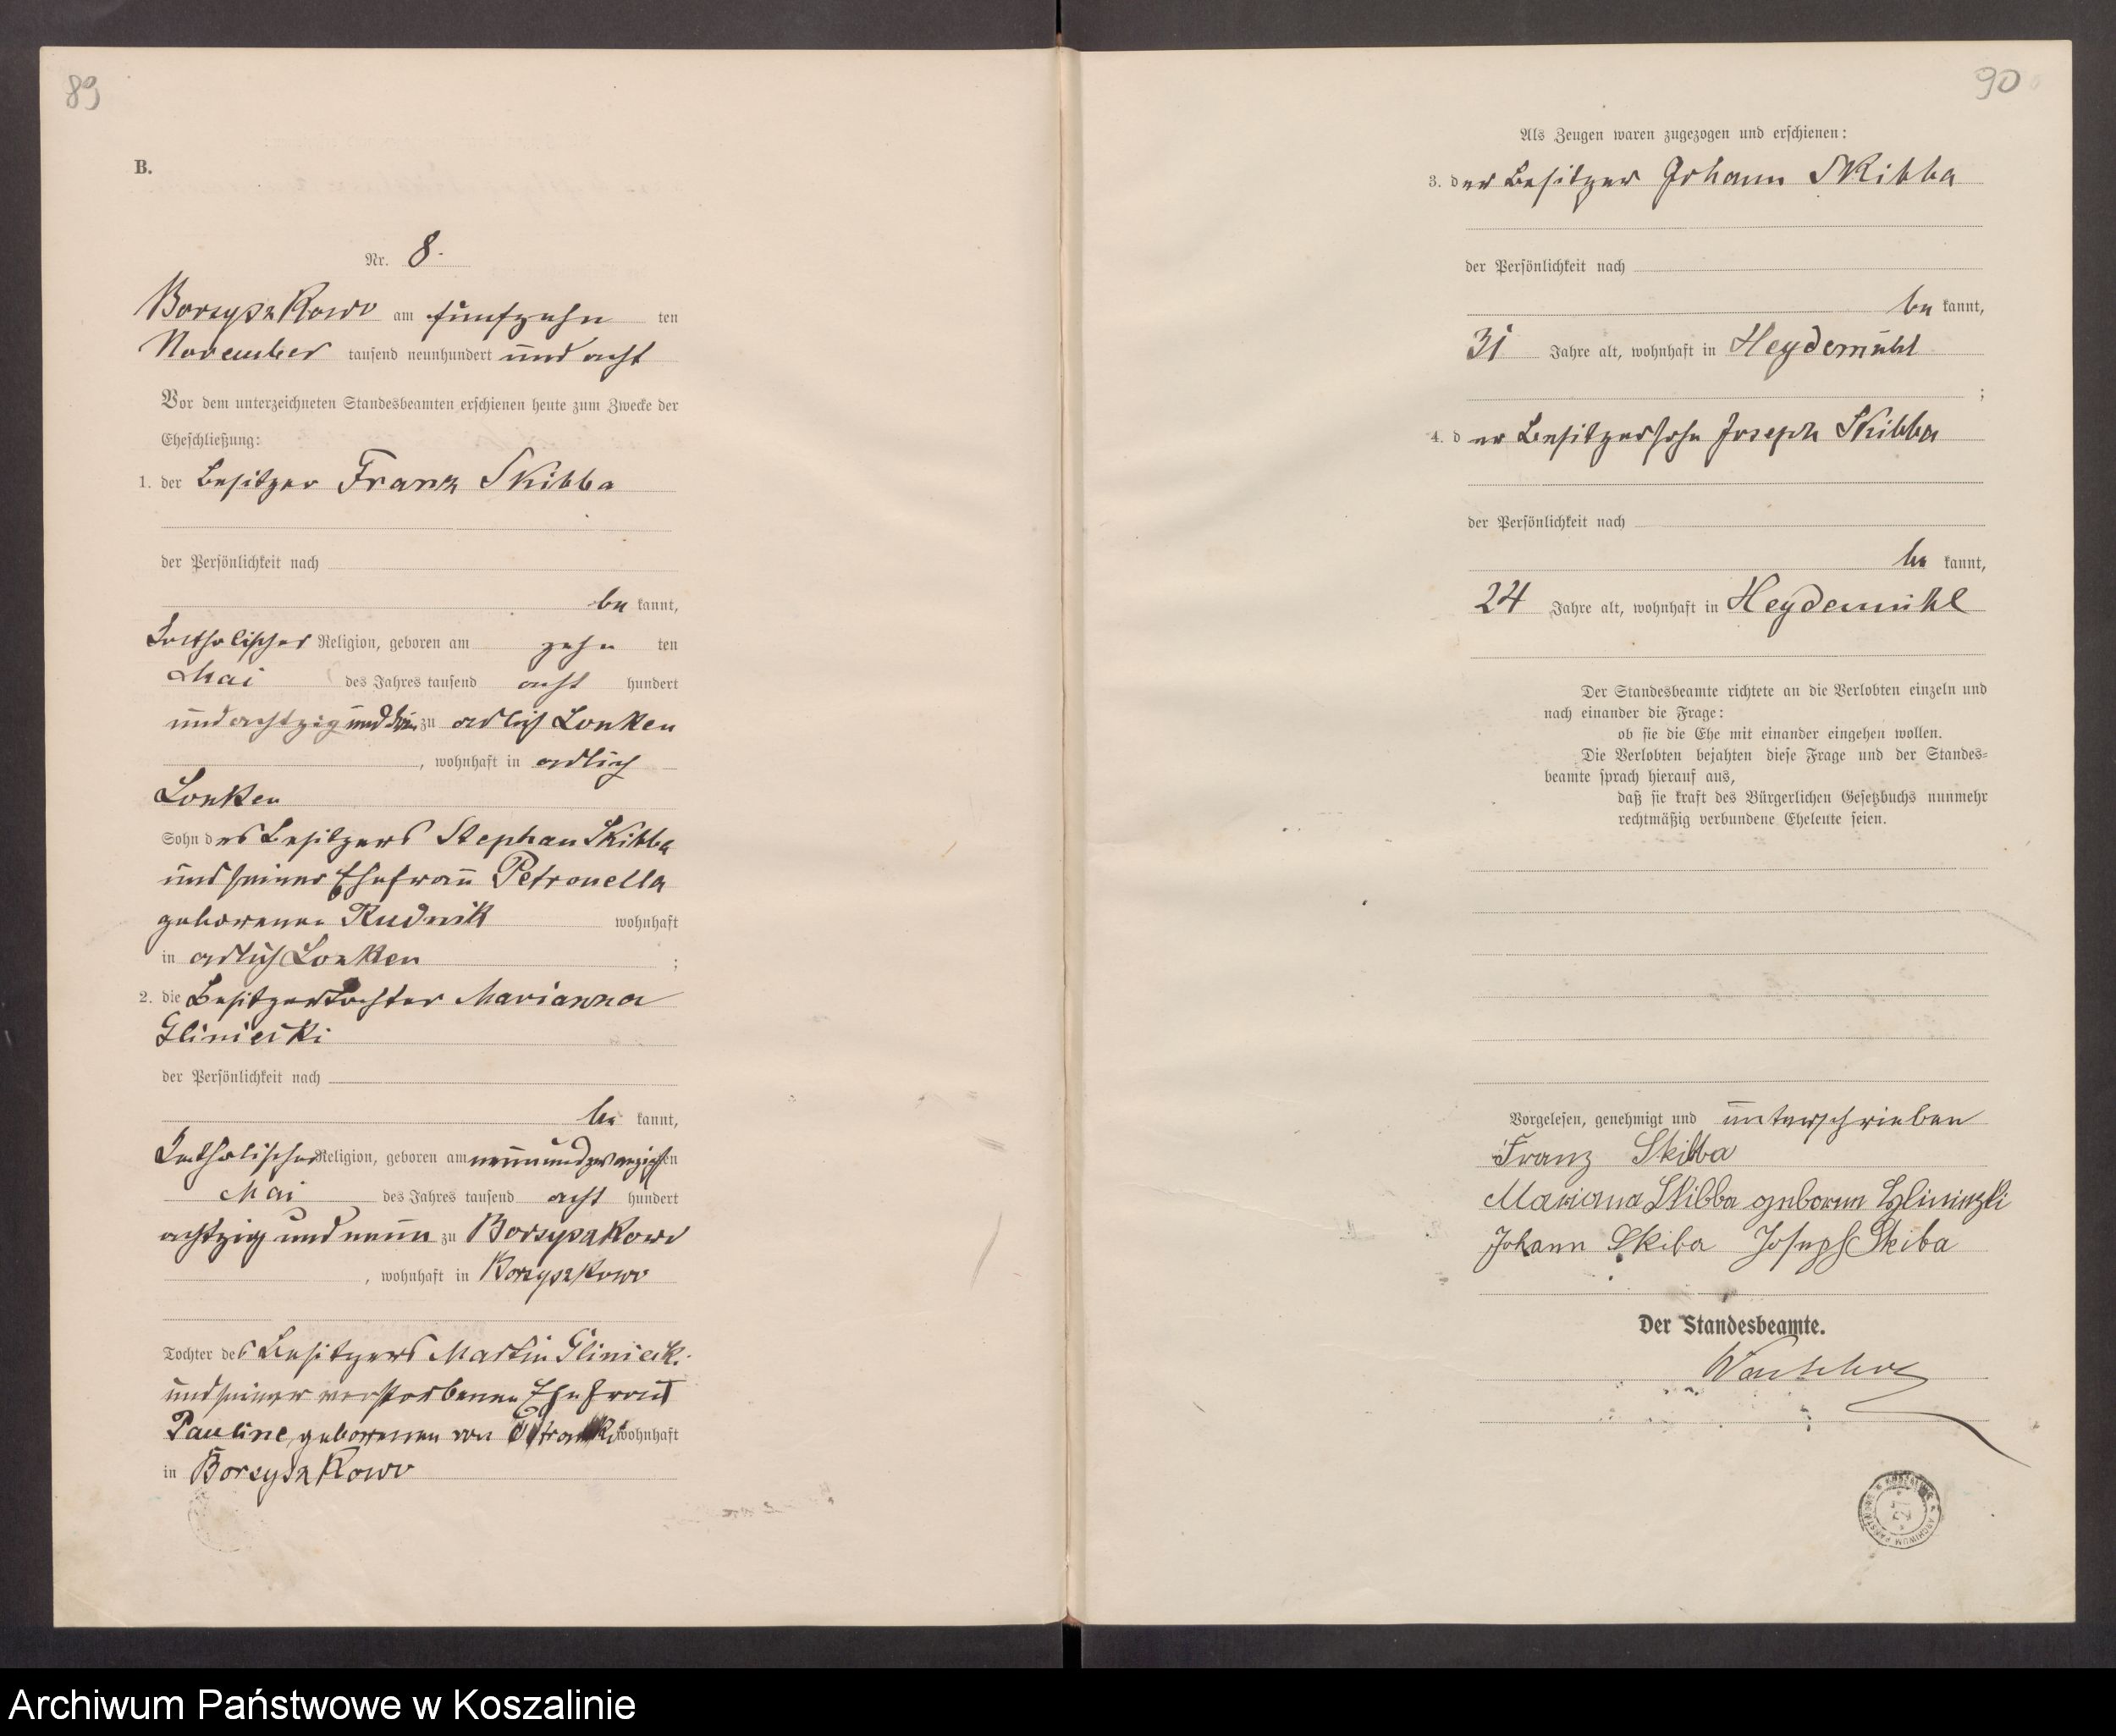 89
B.
Nr. 8.
Borzyszkowo am fünfzehn ten
November tausend neunhundert und acht
Vor dem unterzeichneten Standesbeamten erschienen heute zum Zwecke der
Eheschließung:
1. der Besitzer Franz Skibba
der Persönlichkeit nach
be kannt,
katholischer Religion, geboren am zehn ten
Mai des Jahres tausend acht hundert
und achtzig und drei zu adlich Lonken
, wohnhaft in adlich
Lonken
Sohn des Besitzers Stephan Skibba
und seiner Ehefrau Petronella
geborenen Rudnik wohnhaft
in adlich Lonken ;
2. die Besitzertochter Marianna
Glinieski
der Persönlichkeit nach
be kannt,
katholischer Religion, geboren am neunundzwanzigsten
Mai des Jahres tausend acht hundert
achtzig und neun zu Borzyszkowo
, wohnhaft in Borzyszkowo
Tochter des Besitzers Martin Glinieski
und seiner verstorbenen Ehefrau
Pauline, geborenen von wohnhaft
in Borzyszkowo
90
Als Zeugen waren zugezogen und erschienen:
3. der Besitzer Johann Skibba
der Persönlichkeit nach
be kannt,
31 Jahre alt, wohnhaft in Heydemühl
;
4. der Besitzersohn Joseph Skibba
der Persönlichkeit nach
be kannt,
24 Jahre alt, wohnhaft in Heydemühl
Der Standesbeamte richtete an die Verlobten einzeln und
nach einander die Frage:
ob sie die Ehe mit einander eingehen wollen.
Die Verlobten bejahten diese Frage und der Standes=
beamte sprach hierauf aus,
daß sie kraft des Bürgerlichen Gesetzbuchs nunmehr
rechtmäßig verbundene Eheleute seien.
Vorgelesen, genehmigt und unterschrieben
Franz Skibba
Mariana Skibba geboren Glininzki
Johann Skiba Joseph Skiba
Der Standesbeamte.
ARCHIWUM PAŃSTWOWE * KOSZALIN *
Archiwum Państwowe w Koszalinie